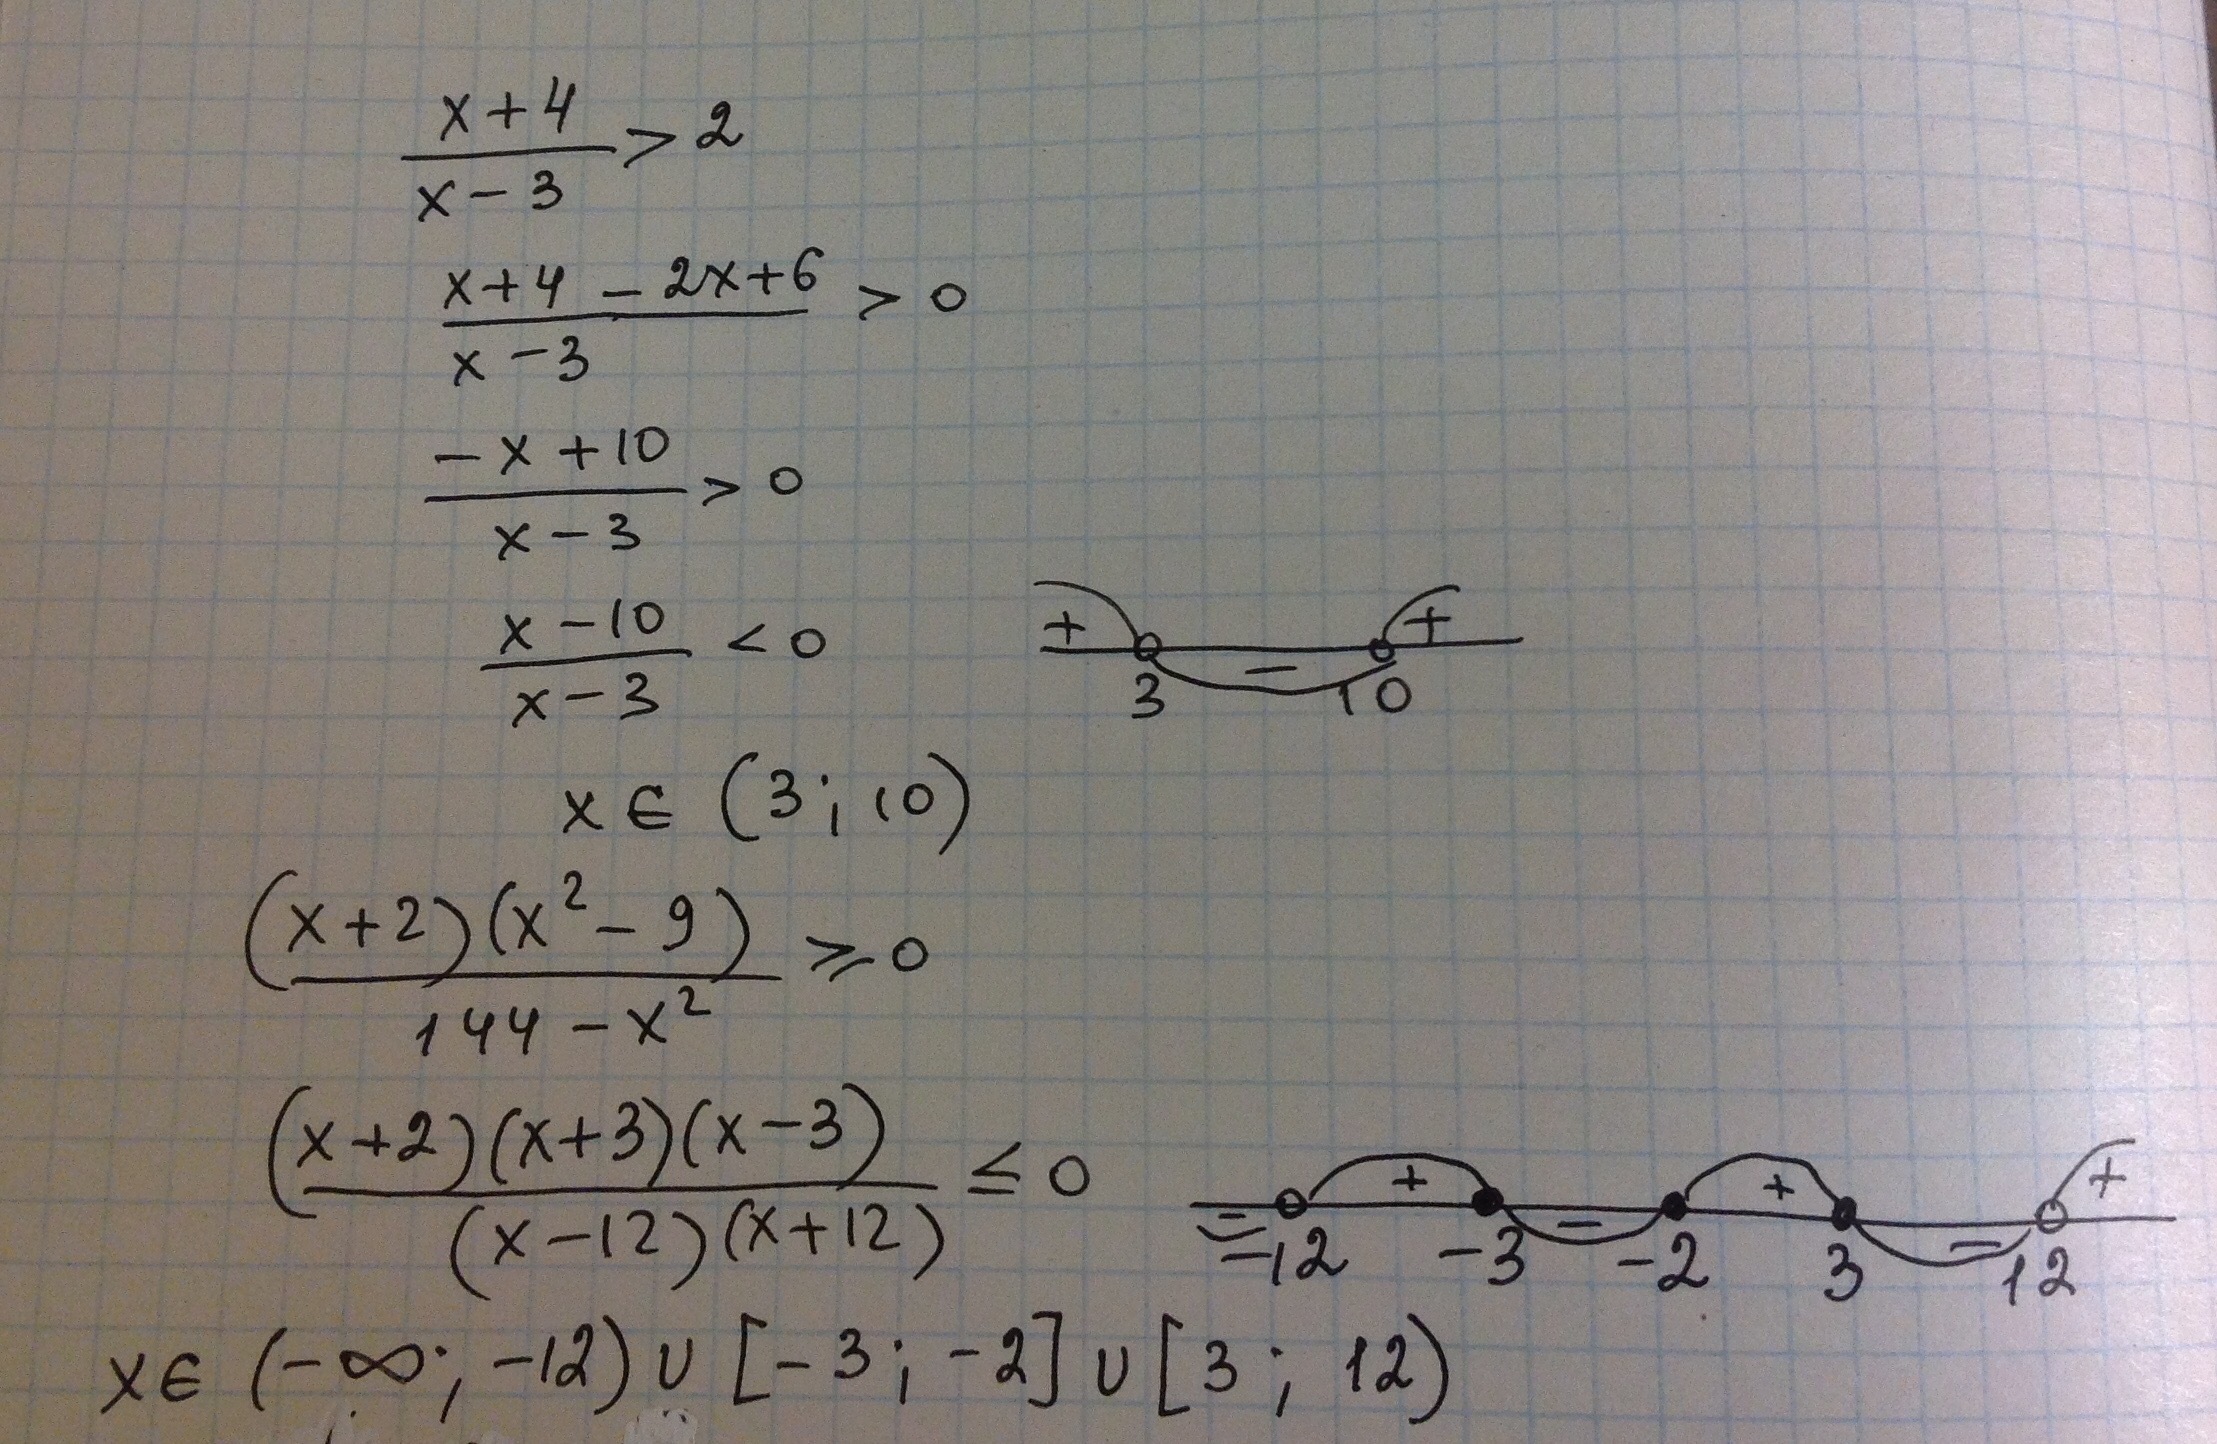 (x+4)/(x-3) > 2
(x+4-2x+6)/(x-3) > 0
(-x+10)/(x-3) > 0
(x-10)/(x-3) < 0
+ - +
3 10
x ∈ (3; 10)
((x+2)(x²-9))/(144-x²) ⩾ 0
((x+2)(x+3)(x-3))/((x-12)(x+12)) ≤ 0
- + - + - +
-12 -3 -2 3 12
x ∈ (-∞; -12) ∪ [-3; -2] ∪ [3; 12)